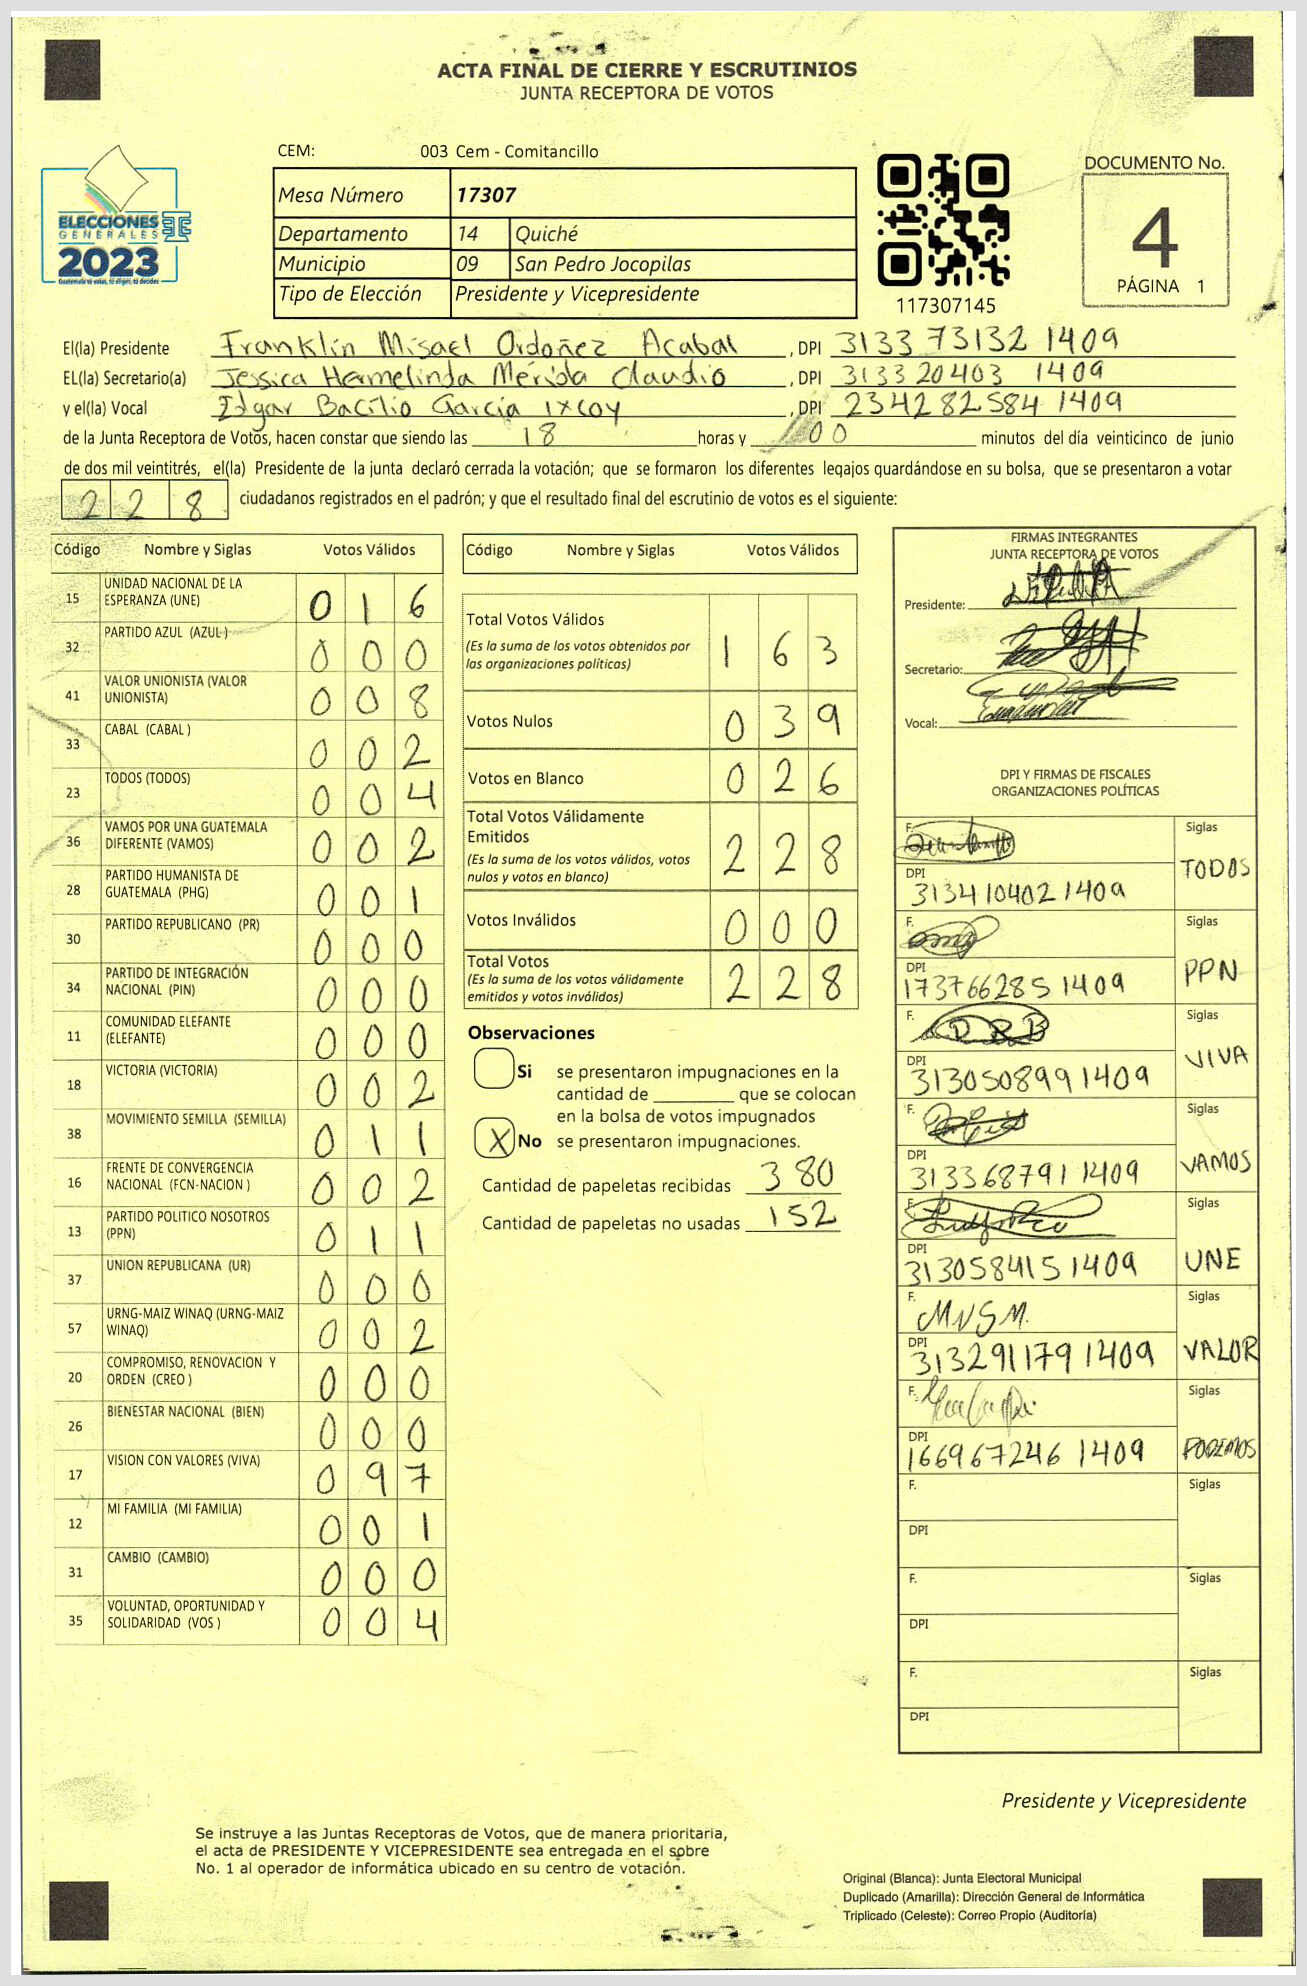 ACTA FINAL DE CIERRE Y ESCRUTINIOS
JUNTA RECEPTORA DE VOTOS
CEM: 003 Cem - Comitancillo
ELECCIONES
GENERALES
2023
Guatemala te valora, tú eliges, tú decides
Mesa Número 17307
Departamento 14 Quiché
Municipio 09 San Pedro Jocopilas
Tipo de Elección Presidente y Vicepresidente
117307145
DOCUMENTO No.
4
PÁGINA 1
El(la) Presidente Franklin Misael Ordoñez Acabal , DPI 3133 73132 1409
EL(la) Secretario(a) Jessica Hermelinda Mérida Claudio , DPI 3133 20403 1409
y el(la) Vocal Edgar Bacilio García Ixcoy , DPI 2342 82584 1409
de la Junta Receptora de Votos, hacen constar que siendo las 18 horas y 00 minutos del día veinticinco de junio
de dos mil veintitrés, el(la) Presidente de la junta declaró cerrada la votación; que se formaron los diferentes legajos guardándose en su bolsa, que se presentaron a votar
228 ciudadanos registrados en el padrón; y que el resultado final del escrutinio de votos es el siguiente:
Código Nombre y Siglas Votos Válidos
15 UNIDAD NACIONAL DE LA ESPERANZA (UNE) 016
32 PARTIDO AZUL (AZUL ) 000
41 VALOR UNIONISTA (VALOR UNIONISTA) 008
33 CABAL (CABAL ) 002
23 TODOS (TODOS) 004
36 VAMOS POR UNA GUATEMALA DIFERENTE (VAMOS) 002
28 PARTIDO HUMANISTA DE GUATEMALA (PHG) 001
30 PARTIDO REPUBLICANO (PR) 000
34 PARTIDO DE INTEGRACIÓN NACIONAL (PIN) 000
11 COMUNIDAD ELEFANTE (ELEFANTE) 000
18 VICTORIA (VICTORIA) 002
38 MOVIMIENTO SEMILLA (SEMILLA) 011
16 FRENTE DE CONVERGENCIA NACIONAL (FCN-NACION ) 002
13 PARTIDO POLITICO NOSOTROS (PPN) 011
37 UNION REPUBLICANA (UR) 000
57 URNG-MAIZ WINAQ (URNG-MAIZ WINAQ) 002
20 COMPROMISO, RENOVACION Y ORDEN (CREO ) 000
26 BIENESTAR NACIONAL (BIEN) 000
17 VISION CON VALORES (VIVA) 097
12 MI FAMILIA (MI FAMILIA) 001
31 CAMBIO (CAMBIO) 000
35 VOLUNTAD, OPORTUNIDAD Y SOLIDARIDAD (VOS ) 004
Código Nombre y Siglas Votos Válidos
Total Votos Válidos 163
(Es la suma de los votos obtenidos por
las organizaciones políticas)
Votos Nulos 039
Votos en Blanco 026
Total Votos Válidamente
Emitidos 228
(Es la suma de los votos válidos, votos
nulos y votos en blanco)
Votos Inválidos 000
Total Votos 228
(Es la suma de los votos válidamente
emitidos y votos inválidos)
Observaciones
Si se presentaron impugnaciones en la
cantidad de ________ que se colocan
en la bolsa de votos impugnados
X No se presentaron impugnaciones.
Cantidad de papeletas recibidas 380
Cantidad de papeletas no usadas 152
FIRMAS INTEGRANTES
JUNTA RECEPTORA DE VOTOS
Presidente:
Secretario:
Vocal:
DPI Y FIRMAS DE FISCALES
ORGANIZACIONES POLÍTICAS
F. Siglas TODOS
DPI 3134 10402 1409
F. Siglas PPN
DPI 1737 66285 1409
F. DRB Siglas VIVA
DPI 3130508991409
F. Siglas VAMOS
DPI 3133687911409
F. Siglas UNE
DPI 3130584151409
F. MVSM. Siglas VALOR
DPI 3132911791409
F. Siglas PODEMOS
DPI 166967246 1409
F. Siglas
DPI
F. Siglas
DPI
F. Siglas
DPI
Presidente y Vicepresidente
Se instruye a las Juntas Receptoras de Votos, que de manera prioritaria,
el acta de PRESIDENTE Y VICEPRESIDENTE sea entregada en el sobre
No. 1 al operador de informática ubicado en su centro de votación.
Original (Blanca): Junta Electoral Municipal
Duplicado (Amarilla): Dirección General de Informática
Triplicado (Celeste): Correo Propio (Auditoría)